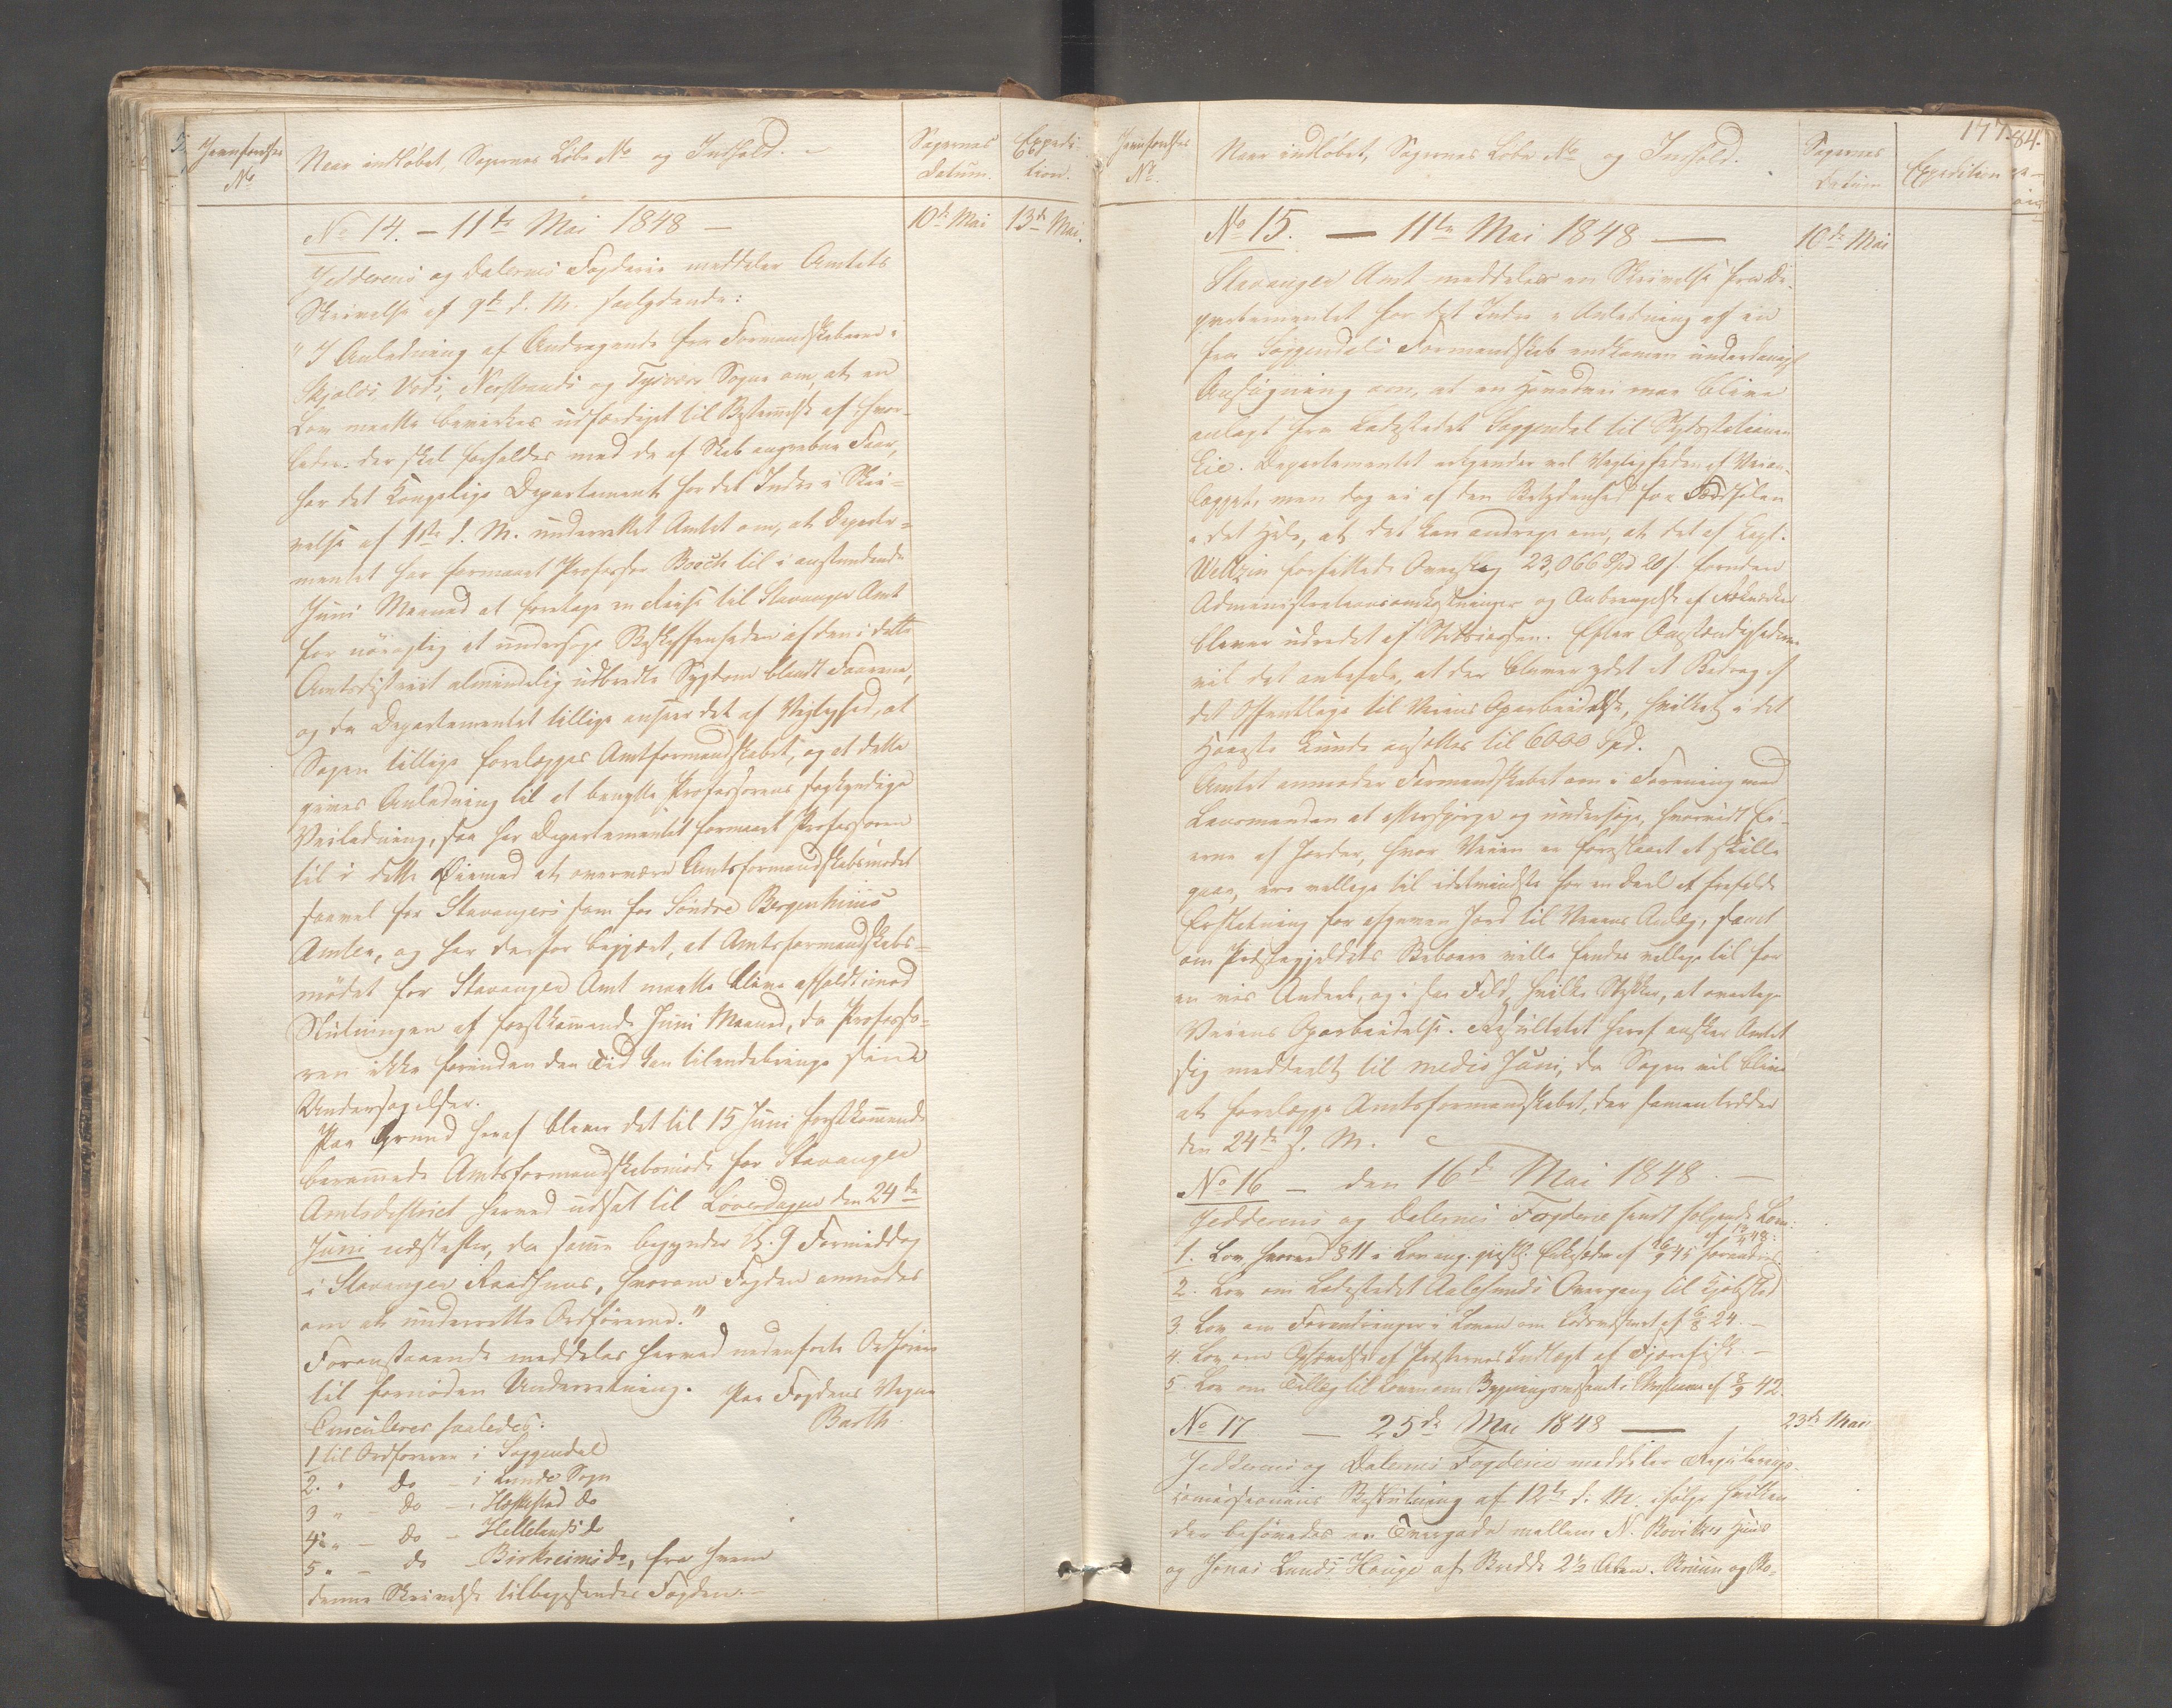 Journalens
No
Naar indløbet, Sagernes Løbe No og Indhold.
Sagernes
Datum.
Expedi-
tion.
No 14. – 11te Mai 1848 –
10de Mai
13de Mai.
Jedderens og Dalernes Fogderie meddeler Amtets
Skrivelse af 9de d. M. saalydende:
"I Anledning af Andragende fra Formandskaberne i
Skjolds, Vods, Nerstrands og Tysvær Sogne om, at en
Lov maatte bevirkes udfærdiget til Bestemmelse af hvor-
ledes der skal forholdes med de af Skab angrebne Faar,
har det Kongelige Departement for det Indre i Skri-
velse af 1ste d. M. underrettet Amtet om, at Departe-
mentet har formaaet Professor Boeck til i anstundende
Juni Maaned at foretage en Reise til Stavanger Amt
for nöiagtig at undersøge Beskaffenheden af den i dette
Amtsdistrict almindelig udbredte Sygdom blandt Faarene,
og da Departementet tillige anseer det af Vigtighed, at
Sagen tillige forelægges Amtsformandskabet, og at dette
gives Anledning til at benytte Professorens sagkyndige
Veiledning, saa har Departementet formaaet Professoren
til i dette Øiemed at overvære Amtsformandskabsmödet
saavel for Stavangers som for Söndre Bergenhuus
Amter, og har derfor begjært, at Amtsformandskabs-
mödet for Stavanger Amt maatte blive afholdt imod
Slutningen af förstkommende Juni Maaned, da Professo-
ren ikke forinden den Tid kan tilendebringe sine
Undersøgelser.
Paa Grund heraf bliver det til 15 Juni förstkommende
berammede Amtsformandskabsmöde for Stavanger
Amtsdistrict herved udsat til Löverdagen den 24de
Juni næstefter, da samme begynder Kl. 9 Formiddag
i Stavanger Raadhuus, hvorom Fogden anmodes
om at underrette Ordførerne."
Foranstaaende meddeles herved nedenførte Ordførere
til fornöden Underretning. Paa Fogdens Vegne
Barth.
Circuleres saaledes:
1 til Ordføreren i Soggendal
2. " do – i Lunde Sogn
3 " – do – i Heskestad do
4 " – do – Hellelands do
5 " – do – Birkreims do, fra hvem
denne Skrivelse tilbagesendes Fogden.–
Journalens
No.
Naar indløbet, Sagernes Løbe No og Indhold.
Sagernes
Datum
Expedition
84.
No 15. – 11te Mai 1848 –
10de Mai
Stavanger Amt meddeler en Skrivelse fra De-
partementet for det Indre i Anledning af en
fra Soggendals Formandskab indkommen underdanigst
Ansøgning om, at en Hovedvei maa blive
anlagt fra Ladestedet Soggendal til Skydsstationen
Eie. Departementet erkjender vel Vigtigheden af Veian-
lægget, men dog ei af den Betydenhed for Færdselen
i det Hele, at det kan andrage om, at det af Capt.
Weltzin forfattede Overslag 23,066 Spd 20 s. foruden
Administrationsomkostninger og Anbringelse af Rækværker
bliver udredet af Statskassen. Efter Omstændighederne
vil det anbefale, at der bliver ydet et Bidrag af
det Offentlige til Veiens Oparbeidelse, hvilket i det
Høieste kunde ansættes til 6000 Spd.
Amtet anmoder Formandskabet om i Forening med
Lensmanden at efterspørge og undersøge, hvorvidt Ei-
erne af Jorder, hvor Veien er foreslaaet at skulle
gaae, ere villige til idetmindste for en Deel at frafalde
Erstatning for afgiven Jord til Veiens Anlæg, samt
om Præstegjeldets Beboere ville findes villige til for
en vis Andeel, og i saa Fald, hvilke Stykker, at overtage
Veiens Oparbeidelse. Resultatet heraf ønsker Amtet
sig meddeelt til medio Juni, da Sagen vil blive
at forelægge Amtsformandskabet, der sammentræder
den 24de s. M.
No 16 – den 16de Mai 1848. –
Jedderens og Dalernes Fogderie sendt følgende Love:
1. Lov hvorved § 11 i Lov ang. forandres
2. Lov om Ladestedet Aalesunds Overgang til Kjøbsted
3. Lov om Forandringer i Loven om Lodsvæsenet af 24. –
4. Lov om Ophævelse af Præsternes Indtægt af Fjærefisk. –
5. Lov om Tillæg til Loven om Bygningsvæsenet i Christiania af 42.
No 17 – 25de Mai 1848 –
23de Mai
Jedderens og Dalernes Fogderie meddeler Regulerings-
commissionens Beslutning af 12te d. M. ifølge hvilken
der befindes en Tvergade mellem N. Huus
og Jonas Lunds Hauge af Bredde 2½ Alen.